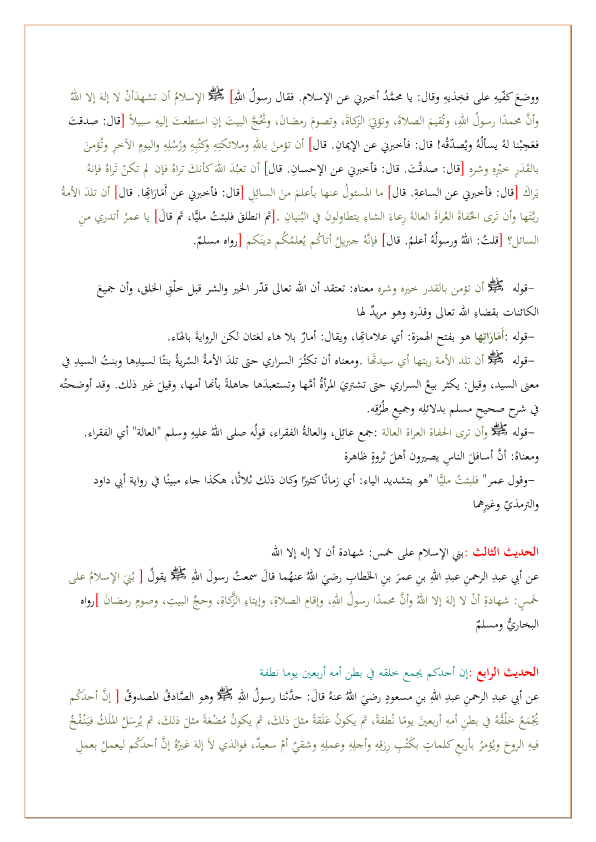 ووضعَ كفّيهِ على فخِذيهِ وقال: يا محمَّدُ أخبرني عن الإسلام. فقال رسولُ اللهِ] ﷺ الإسلامُ أن تشهدَأنْ لا إلهَ إلا اللهُ
وأنَّ محمدًا رسولُ اللهِ، وتُقيمَ الصلاةَ، وتؤتيَ الزَكاةَ، وتصومَ رمضانَ، وتَحُجَّ البيتَ إنِ استطعتَ إليهِ سبيلاً [قال: صدقتَ
فعَجِبْنا لهُ يسألُهُ ويُصدّقُه! قال: فأخبرني عن الإيمانِ. قال] أن تؤمنَ باللهِ وملائكتِهِ وكتُبِهِ ورُسُلِهِ واليومِ الآخرِ وتُؤمنَ
بالقَدَرِ خيْرِهِ وشرهِ [قال: صدقْتَ. قال: فأخبرني عن الإحسانِ. قال] أن تعبُدَ اللهَ كأنكَ تراهُ فإن لم تكنْ تَراهُ فإنهُ
يَراكَ [قال: فأخبرني عن الساعةِ. قال] ما المسئولُ عنها بأعلمَ منَ السائلِ [قال: فأخبرني عن أَمَارَاتِها. قال] أن تلدَ الأمةُ
ربَّتَها وأن تَرى الحُفاةَ العُراةَ العالةَ رِعاءَ الشاءِ يتطاولونَ في البُنيانِ .[ثم انطلقَ فلبثتُ مليًّا، ثم قالَ] يا عمرُ أتدري منِ
السائل؟ [قلتُ: اللهُ ورسولُهُ أعلمُ. قال] فإنَّهُ جبريلُ أتاكُم يُعلمُكُم دينَكم [رواه مسلمٌ.
–قوله ﷺ أن تؤمن بالقدر خيره وشره معناه: تعتقد أن الله تعالى قدّر الخير والشر قبل خلْقِ الخلق، وأن جميعَ
الكائنات بقضاءِ الله تعالى وقدَره وهو مريدٌ لها
–قوله :أَمَارَاتِها هو بفتح الهمزة: أي علاماتِها، ويقال: أمارٌ بلا هاء لغتان لكن الروايةَ بالهاء.
–قوله ﷺ أن تلد الأمة ربتها أي سيدتَها .ومعناه أن تكثُرَ السراري حتى تلدَ الأمةُ السُريةُ بنتًا لسيدِها وبنتُ السيدِ في
معنى السيد، وقيل: يكثر بيعُ السراري حتى تشتريَ المرأةُ أمَّها وتستعبدَها جاهلةً بأنها أمها، وقيلَ غير ذلك. وقد أوضحتُه
في شرح صحيحِ مسلم بدلائلِه وجميعِ طُرُقِه.
–قوله ﷺ وأن ترى الحفاة العراة العالة :جمع عائلٍ، والعالةُ الفقراء، قولُه صلى اللهُ عليهِ وسلم "العالة" أي الفقراء.
ومعناهُ: أنَّ أسافلَ الناسِ يصيرون أهلَ ثروةٍ ظاهرة
–وقول عمر" فلبثتُ مليًّا "هو بتشديد الياء: أي زمانًا كثيرًا وكان ذلك ثلاثًا، هكذا جاء مبينًا في رواية أبي داود
والترمذيّ وغيرِهما
الحديث الثالث :بني الإسلام على خمس: شهادة أن لا إله إلا الله
عن أبي عبدِ الرحمنِ عبدِ اللهِ بنِ عمرَ بنِ الخطابِ رضيَ اللهُ عنهُما قالَ سمعتُ رسولَ اللهِ ﷺ يقولُ [ بُنِيَ الإسلامُ على
خَمسٍ: شهادةِ أنْ لا إلهَ إلا اللهُ وأنَّ محمدًا رسولُ اللهِ، وإقامِ الصلاةِ، وإيتاءِ الزَّكاةِ، وحجِّ البيتِ، وصومِ رمضانَ ]رواه
البخاريُّ ومسلمٌ
الحديث الرابع :إن أحدكم يجمع خلقه في بطن أمه أربعين يوما نطفة
عن أبي عبدِ الرحمنِ عبدِ اللهِ بنِ مسعودٍ رضيَ اللهُ عنهُ قالَ: حدَّثنا رسولُ اللهِ ﷺ وهو الصَّادقُ المصدوقُ [ إنَّ أحدَكُم
يُجْمَعُ خَلْقُهُ في بطنِ أمهِ أربعينَ يومًا نُطفةً، ثم يكونُ عَلَقةً مثلَ ذلكَ، ثم يكونُ مُضْغةً مثلَ ذلكَ، ثم يُرسَلُ المَلَكُ فيَنْفُخُ
فيهِ الروحَ ويُؤمَرُ بأربعِ كلماتٍ بكَتْبِ رِزقِهِ وأجلِهِ وعملِهِ وشقيٌ أمْ سعيدٌ، فوالذي لاَ إلهَ غيرُهُ إنَّ أحدَكُم ليعملُ بعملِ